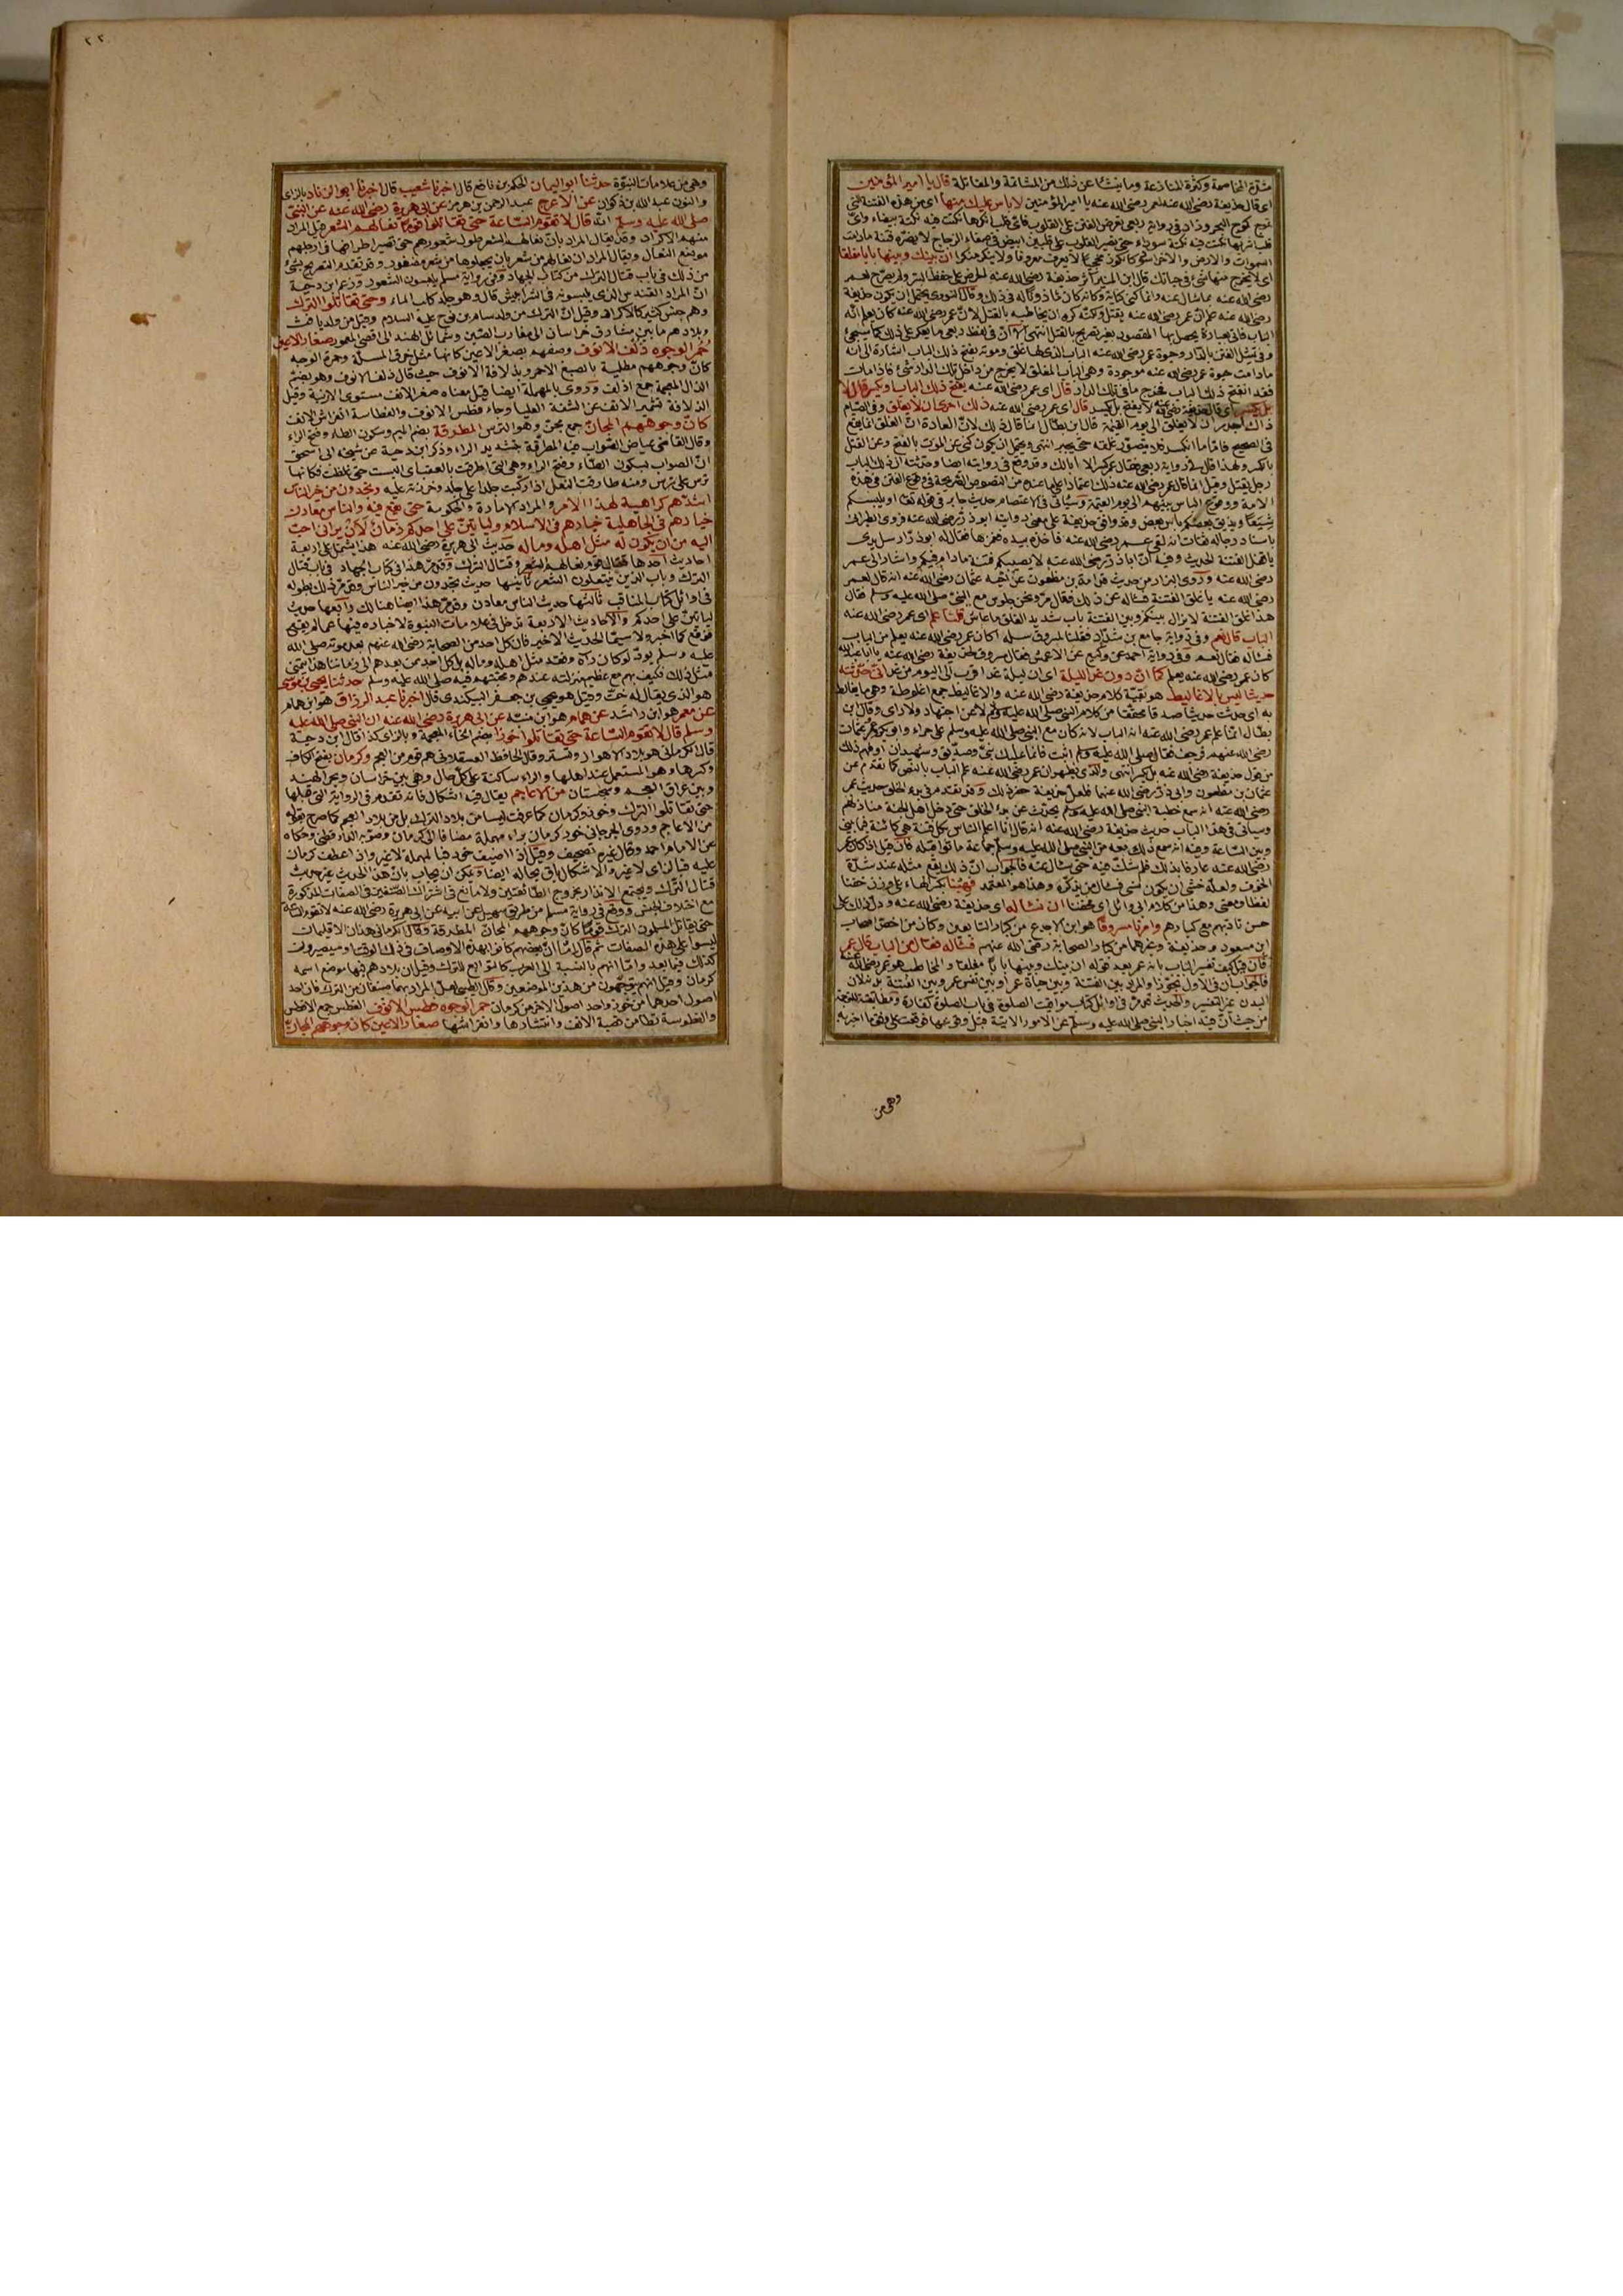 شدة المخاصمة وكثرة المنازعة وما ينشأ عن ذلك من المشاتمة والمقاتلة قال يا امير المؤمنين
اى قال حذيفة رضى الله عنه لعمر رضى الله عنه يا امير المؤمنين لا باس عليك منها اى من هذه الفتنة التى
تموج كموج البحر وزاد فى رواية ربعى تعرض الفتن على القلوب فاى قلب انكرها نكتت فيه نكتة بيضاء واى
قلب اشربها نكتت فيه نكتة سوداء حتى يصير القلوب على قلبين ابيض مثل صفاء الزجاج لا يضره فتنة ما دامت
السموات والارض والاخر اسود كالكوز مجخيا لا يعرف معروفا ولا ينكر منكرا ان بينك وبينها بابا مغلقا
اى لا يخرج منها شئ فى حياتك قال ابن المنير آثر حذيفة رضى الله عنه الحرص على حفظ السر ولم يصرح لعمر
رضى الله عنه بما سأل عنه وانما كنى كناية وكانه كان ماذونا له فى ذلك وقال النووى يحتمل ان يكون حذيفة
رضى الله عنه علم ان عمر رضى الله عنه يقتل ولكنه كره ان يخاطبه بالقتل لان عمر رضى الله عنه كان يعلم انه
الباب فاتى بعبارة يحصل بها المقصود بغير تصريح بالقتل انتهى
ما دامت حيوة عمر رضى الله عنه موجودة وهى الباب المغلق لا يخرج من داخل تلك الدار شئ فاذا مات
فقد انفتح ذلك الباب فخرج ما فى تلك الدار قال اى عمر رضى الله عنه يفتح ذلك الباب او يكسر قال لا
بل يكسر اى قال حذيفة رضى الله عنه لا يفتح بل يكسر قال اى عمر رضى الله عنه ذلك احرى ان لا يغلق وفى الصيام
ذاك اجدر ان لا يغلق الى يوم القيمة قال ابن بطال انما قال ذلك لان العادة ان الغلق انما يقع
فى الصحيح فاما ما انكسر فلا يتصور غلقه حتى يجبر انتهى ويحتمل ان يكون كنى عن الموت بالفتح وعن القتل
بالكسر ولهذا قال فى رواية ربعى فقال عمر كسرا لا ابا لك وقد وقع فى روايته ايضا وحدثته ان ذلك الباب
رجل يقتل وقيل انما قال عمر رضى الله عنه ذلك اعتمادا على ما عنده من النصوص الصريحة فى وقوع الفتن فى هذه
الامة ووقوع الباس بينهم الى يوم القيمة وسياتى فى الاعتصام حديث جابر فى قوله تعالى او يلبسكم
شيعا ويذيق بعضكم باس بعض وقد وافق حذيفة على معنى روايته ابو ذر رضى الله عنه فروى الطبرانى
باسناد رجاله ثقات انه لقى عمر رضى الله عنه فاخذ بيده فغمزها فقال له ابو ذر ارسل يدى
يا قفل الفتنة الحديث وفيه ان ابا ذر رضى الله عنه لا يصيبكم فتنة ما دام فيكم واشار الى عمر
رضى الله عنه وروى البزار من حديث قدامة بن مظعون عن اخيه عثمان رضى الله عنه انه قال لعمر
رضى الله عنه يا غلق الفتنة فسأله عن ذلك فقال مررت ونحن جلوس مع النبى صلى الله عليه وسلم فقال
هذا غلق الفتنة لا يزال بينكم وبين الفتنة باب شديد الغلق ما عاش قلنا علم اى عمر رضى الله عنه
الباب قال نعم وفى رواية جامع بن شداد فقلنا لمسروق سله اكان عمر رضى الله عنه يعلم من الباب
فسأله فقال نعم وفى رواية احمد عن وكيع عن الاعمش فقال مسروق لحذيفة رضى الله عنه يا ابا عبد الله
كان عمر رضى الله عنه يعلم كما ان دون غد الليلة اى ان ليلة غد اقرب الى اليوم من غد انى حدثته
حديثا ليس بالاغاليط هو بقية كلام حذيفة رضى الله عنه والاغاليط جمع اغلوطة وهى ما يغالط
به اى حدثت حديثا صدقا محققا من كلام النبى صلى الله عليه وسلم لا عن اجتهاد ولا راى وقال ابن
بطال انما علم عمر رضى الله عنه انه الباب لانه كان مع النبى صلى الله عليه وسلم على حراء وابو بكر وعمر وعثمان
رضى الله عنهم فرجف فقال صلى الله عليه وسلم اثبت فانما عليك نبى وصديق وشهيدان او فهم ذلك
من قول حذيفة رضى الله عنه بل يكسر انتهى والذى يظهر ان عمر رضى الله عنه علم الباب بالنص كما تقدم عن
عثمان بن مظعون وابى ذر رضى الله عنهما فلعل حذيفة حضر ذلك وقد تقدم فى بدء الخلق حديث عمر
رضى الله عنه انه سمع خطبة النبى صلى الله عليه وسلم يحدث عن بدء الخلق حتى دخل اهل الجنة منازلهم
وسياتى فى هذا الباب حديث حذيفة رضى الله عنه انه قال انا اعلم الناس بكل فتنة هى كائنة فيما بينى
وبين الساعة وفيه انه سمع ذلك معه من النبى صلى الله عليه وسلم جماعة ماتوا قبله فان قيل اذا كان عمر
رضى الله عنه عارفا بذلك فلم شك فيه حتى سأل عنه فالجواب ان ذلك يقع مثله عند شدة
الخوف ولعله خشى ان يكون نسى فسأل من يذكره وهذا هو المعتمد فهبنا بكسر الهاء على وزن خفنا
لفظا ومعنى وهذا من كلام ابى وائل اى خفنا ان نسأله اى حذيفة رضى الله عنه ودل ذلك على
حسن تادبهم مع كبارهم وامرنا مسروقا هو ابن الاجدع من كبار التابعين وكان من اخص اصحاب
ابن مسعود وحذيفة وغيرهما من كبار الصحابة رضى الله عنهم فسأله فقال من الباب قال عمر
فان قيل كيف تفسير الباب بانه عمر بعد قوله ان بينك وبينها بابا مغلقا والمخاطب هو عمر رضى الله عنه
فالجواب ان فى الاول تجوزا والمراد بين الفتنة وبين حياة عمر او بين نفس عمر وبين الفتنة بدنه لان
البدن غير النفس والحديث قد مر فى اوائل كتاب مواقيت الصلوة فى باب الصلوة كفارة ومطابقته للترجمة
من حيث ان فيه اخبار النبى صلى الله عليه وسلم عن الامور الآتية قبل وقوعها فوقعت على وفق ما اخبر به
وهى من
٢٢
وهى من علامات النبوة حدثنا ابو اليمان الحكم بن نافع قال اخبرنا شعيب قال اخبرنا ابو الزناد بالزاى
والنون عبد الله بن ذكوان عن الاعرج عبد الرحمن بن هرمز عن ابى هريرة رضى الله عنه عن النبى
صلى الله عليه وسلم انه قال لا تقوم الساعة حتى تقاتلوا قوما نعالهم الشعر قيل المراد
منهم الاكراد وقد يقال المراد بان نعالهم الشعر طول شعورهم حتى تصير اطرافها فى ارجلهم
موضع النعال ويقال المراد ان نعالهم من شعر بان يجعلوها من شعر مضفور وقد تقدم التصريح بشئ
من ذلك فى باب قتال الترك من كتاب الجهاد وفى رواية مسلم يلبسون الشعور وزعم ابن دحية
ان المراد القندس الذى يلبسونه فى الشرابيش قال وهو جلد كلب الماء وحتى تقاتلوا الترك
وهم جنس كثير كالاكراد وقيل ان الترك من ولد سام بن نوح عليه السلام وقيل من ولد يافث
وبلادهم ما بين مشارق خراسان الى مغارب الصين وشمائل الهند الى اقصى المعمور صغار الاعين
حمر الوجوه ذلف الانوف وصفهم بصغر الاعين كانها مثل خرق المسلة وحمرة الوجه
كان وجوههم مطلية بالصبغ الاحمر وبذلافة الانوف حيث قال ذلف الانوف وهو بضم
الذال المعجمة جمع اذلف وروى بالمهملة ايضا قيل معناه صغر الانف مستوى الارنبة وقيل
الذلافة تشمير الانف عن الشفة العليا وجاء فطس الانوف والفطاسة انفراش الانف
كان وجوههم المجان جمع مجن وهو الترس المطرقة بضم الميم وسكون الطاء وفتح الراء
وقال القاضى عياض الصواب فيه المطرقة بتشديد الراء وذكر ابن دحية عن شيخه ابى اسحق
ان الصواب بسكون الطاء وفتح الراء وهى التى اطرقت بالعقب اى البست حتى غلظت فكانها
ترس على ترس ومنه طارقت النعل اذا ركبت جلدا على جلد وخرزته عليه وتجدون من خير الناس
اشدهم كراهية لهذا الامر والمراد الامارة والحكومة حتى يقع فيه والناس معادن
خيارهم فى الجاهلية خيارهم فى الاسلام ولياتين على احدكم زمان لان يرانى احب
اليه من ان يكون له مثل اهله وماله حديث ابى هريرة رضى الله عنه هذا يشتمل على اربعة
احاديث احدها قتال قوم نعالهم الشعر وقتال الترك وقد مر هذا فى كتاب الجهاد فى باب قتال
الترك وباب الذين ينتعلون الشعر ثانيها حديث تجدون من خير الناس وقد مر ذلك بطوله
فى اوائل كتاب المناقب ثالثها حديث الناس معادن وقد مر هذا ايضا هنالك رابعها حديث
لياتين على احدكم والاحاديث الاربعة تدخل فى علامات النبوة لاخباره فيها عما لم يقع
فوقع كما اخبر ولا سيما الحديث الاخير فان كل احد من الصحابة رضى الله عنهم بعد موته صلى الله
عليه وسلم يود لو كان رآه وفقد مثل اهله وماله بل كل احد ممن بعدهم الى زماننا هذا يتمنى
مثل ذلك فكيف بهم مع عظيم منزلته عندهم ومحبتهم فيه صلى الله عليه وسلم حدثنا يحيى بن موسى
هو الذى يقال له خت وقيل هو يحيى بن جعفر البيكندى قال اخبرنا عبد الرزاق هو ابن همام
عن معمر هو ابن راشد عن همام هو ابن منبه عن ابى هريرة رضى الله عنه ان النبى صلى الله عليه
وسلم قال لا تقوم الساعة حتى تقاتلوا خوزا بضم الخاء المعجمة وبالزاى كذا قال ابن دحية
قال الكرمانى هو بلاد الاهواز وتستر وقال الحافظ العسقلانى هم قوم من العجم وكرمان بفتح الكاف
وكسرها وهو المستعمل عند اهلها والراء ساكنة على كل حال وهى بين خراسان وبحر الهند
وبين عراق العجم وسجستان من الاعاجم يقال فيه اشكال فانه تقدم فى الرواية التى قبلها
حتى تقاتلوا الترك وخوز وكرمان كما عرفت ليسا من بلاد الترك بل من بلاد العجم كما صرح بقوله
من الاعاجم وروى الجرجانى خور كرمان براء مهملة مضافا الى كرمان وصوبه الدارقطنى وحكاه
عن الامام احمد وقال غيره تصحيف وقيل اذا اضيف خور فبالمهملة لا غير واذا عطفت كرمان
عليه فبالزاى لا غير والاشكال باق بحاله ايضا ويمكن ان يجاب بان هذا الحديث غير حديث
قتال الترك ويجتمع الانذار بخروج الطائفتين ولا مانع فى اشتراك الصنفين فى الصفات المذكورة
مع اختلاف الجنس ووقع فى رواية مسلم من طريق سهيل عن ابيه عن ابى هريرة رضى الله عنه لا تقوم الساعة
حتى يقاتل المسلمون الترك قوما كان وجوههم المجان المطرقة وقال الكرمانى هذان الاقليمان
ليسوا على هذه الصفات ثم قال اما ان بعضهم كانوا بهذه الاوصاف فى ذلك الوقت او سيصيرون
كذلك فيما بعد واما انهم بالنسبة الى العرب كالتوابع للترك وقيل ان بلادهم فيها موضع اسمه
كرمان وقيل انهم يتوجهون من هذين الموضعين وقال الطيبى لعل المراد بهما صنفان من الترك فان احد
اصول احدهما من خوز واحد اصول الاخر من كرمان حمر الوجوه فطس الانوف الفطس جمع الافطس
والفطوسة تطامن قصبة الانف وانتشارها وانفراشها صغار الاعين كان وجوههم المجان